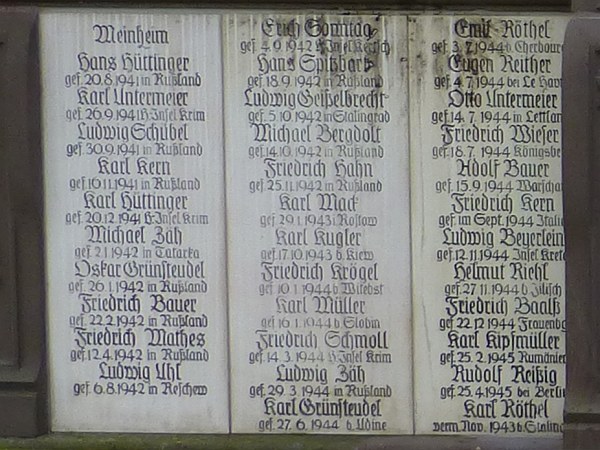 Meinheim
Hans Hüttinger
gef. 20.8.1941 in Rußland
Karl Untermeier
gef. 26.9.1941 H.Insel Krim
Ludwig Schübel
gef. 30.9.1941 in Rußland
Karl Kern
gef. 16.11.1941 in Rußland
Karl Hüttinger
gef. 20.12.1941 H.Insel Krim
Michael Zäh
gef. 2.1.1942 in Tatarka
Oskar Grünsteudel
gef. 26.1.1942 in Rußland
Friedrich Bauer
gef. 22.2.1942 in Rußland
Friedrich Mathes
gef. 12.4.1942 in Rußland
Ludwig Uhl
gef. 6.8.1942 in Reschew
Erich Sonntag
gef. 4.9.1942 H.Insel Kertsch
Hans Spitzbart
gef. 18.9.1942 in Rußland
Ludwig Geißelbrecht
gef. 5.10.1942 in Stalingrad
Michael Bergdolt
gef. 14.10.1942 in Rußland
Friedrich Hahn
gef. 25.11.1942 in Rußland
Karl Mack
gef. 29.1.1943 i Rostow
Karl Kugler
gef. 17.10.1943 b. Kiew
Friedrich Krögel
gef. 10.1.1944 b Witebst
Karl Müller
gef. 16.1.1944 b Slobin
Friedrich Schmoll
gef. 14.3.1944 H.Insel Krim
Ludwig Zäh
gef. 29.3.1944 in Rußland
Karl Grünsteudel
gef. 27.6.1944 b. Udine
Emil Röthel
gef. 3.7.1944 b. Cherbour
Eugen Reither
gef. 4.7.1944 bei Le Hav
Otto Untermeier
gef. 14.7.1944 in Lettlan
Friedrich Wieser
gef. 18.7.1944 Königsbe
Adolf Bauer
gef. 15.9.1944 Warschau
Friedrich Kern
gef. im Sept. 1944 Itali
Ludwig Beyerlein
gef. 12.11.1944 Insel Kret
Helmut Riehl
gef. 27.11.1944 b. Jilisch
Friedrich Baalß
gef. 22.12.1944 Frauenb
Karl Kipfmüller
gef. 25.2.1945 Rumänie
Rudolf Reißig
gef. 25.4.1945 bei Berli
Karl Röthel
verm. Nov. 1943 b. Stalin